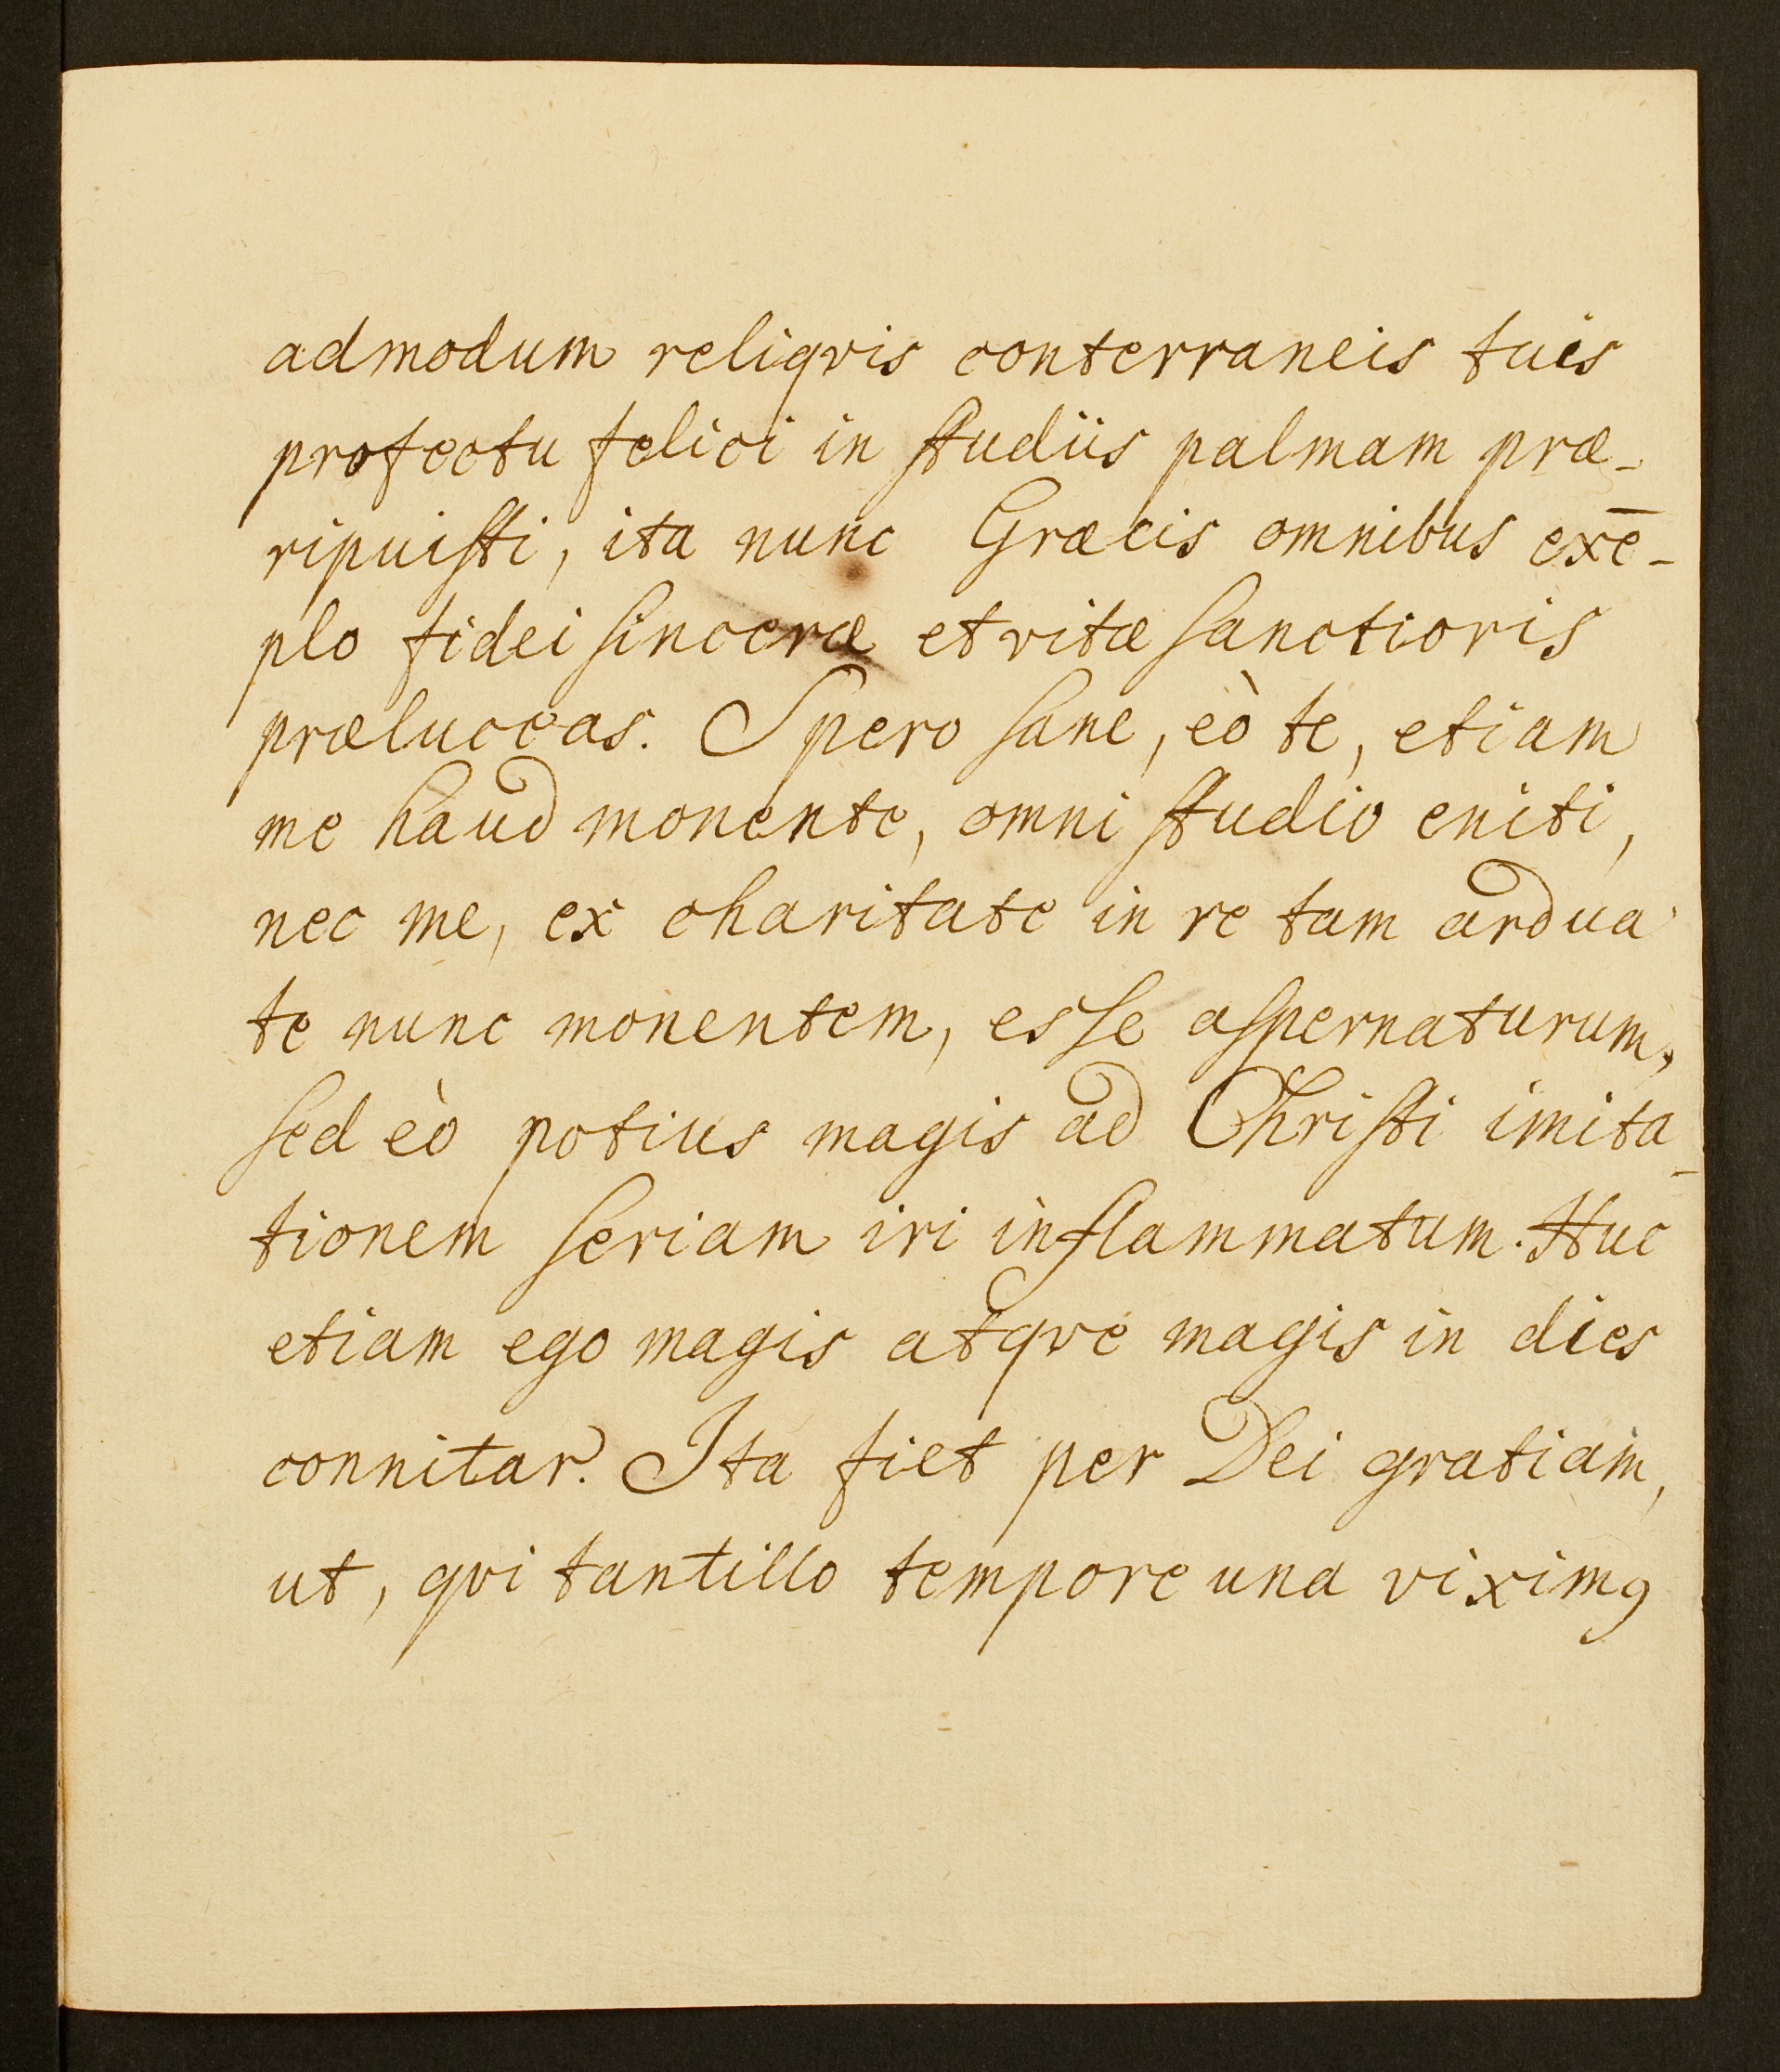 admodum reliqvis conterraneis tuis
profectu felici in ſtudiis palmam præ-
ripuiſti, ita nunc Græcis omnibus exē-
plo fidei ſinceræ et vitæ ſanctioris
præluceas. Spero ſane, eò te, etiam
me haud monente, omni ſtudio eniti,
nec me, ex charitate in re tam ardua
te nunc monentem, esſe aſpernaturum,
ſed eò potius magis ad Chriſti imita-
tionem ſeriam iri inflammatum. Huc
etiam ego magis atqve magis in dies
connitar. Ita fiet per Dei gratiam,
ut, qvi tantillo tempore una viximꝰ